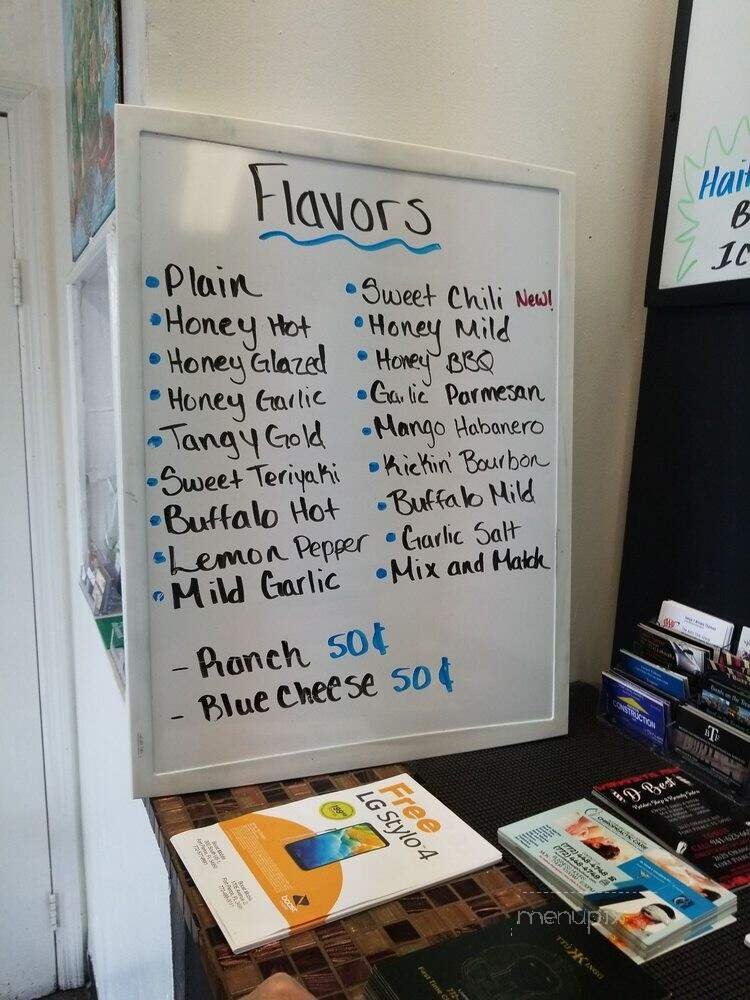 Flavors
Plain
Honey Hot
Honey Glazed
Honey Garlic
Tangy Gold
Sweet Teriyaki
Buffalo Hot
Lemon Pepper
Mild Garlic
Sweet Chili New!
Honey Mild
Honey BBQ
Garlic Parmesan
Mango Habanero
Kickin' Bourbon
Buffalo Mild
Garlic Salt
Mix and Match
- Ranch 50¢
- Blue Cheese 50¢
Free
LG Stylo 4
boost
CONSTRUCTION
BTF
D Best
(772) 448-4748
(772) 448-4749
menupix